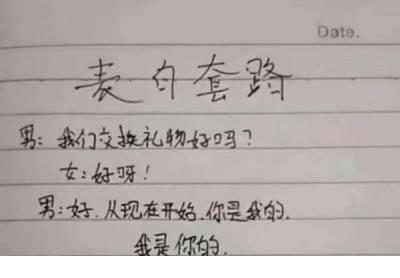 Date.
表白套路
男：我们交换礼物好吗？
女：好呀！
男：好.从现在开始.你是我的.
我是你的.